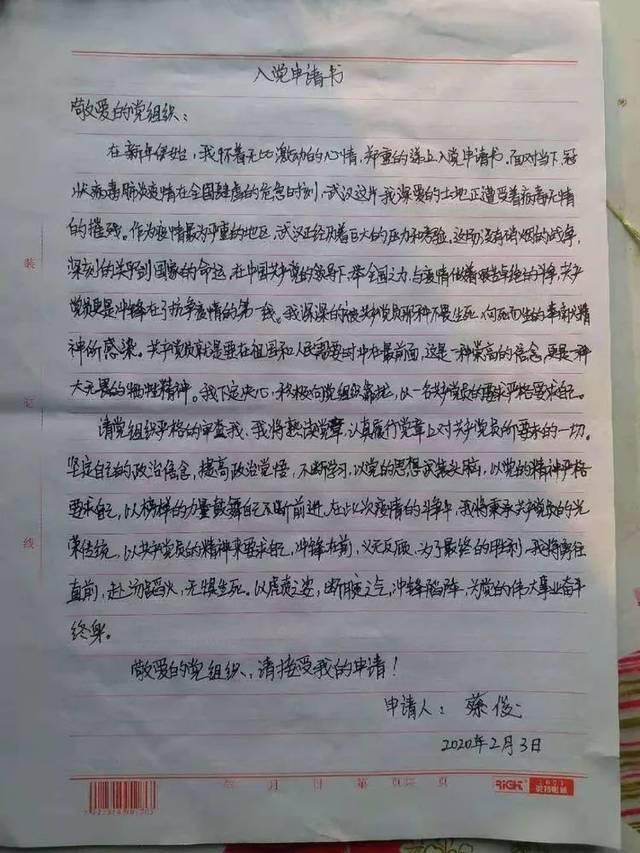 入党申请书
敬爱的党组织：
在新年伊始，我怀着无比激动的心情，郑重的递上入党申请书。面对当下，冠
状病毒肺炎疫情在全国肆虐的危急时刻，武汉这片我深爱的土地正遭受着病毒无情
的摧残。作为疫情最为严重的地区，武汉正经历着巨大的压力和考验，这场没有硝烟的战争，
深刻的关乎到国家的命运。在中国共产党的领导下，举全国之力，与疫情做着艰苦卓绝的斗争，共产
党员更是冲锋在了抗争疫情的第一线。我深深的被共产党员那种不畏生死、向死而生的革命精
神所感染。共产党员就是要在祖国和人民需要时冲在最前面，这是一种崇高的信念，更是一种
大无畏的牺牲精神。我下定决心，积极向党组织靠拢，以一名共产党员的要求严格要求自己。
请党组织严格的审查我，我将熟读党章，认真履行党章上对共产党员所要求的一切。
坚定自己的政治信念，提高政治觉悟，不断学习，以党的思想武装头脑，以党的精神严格
要求自己，以榜样的力量鼓舞自己不断前进。在此次疫情的斗争中，我将秉承共产党员的光
荣传统，以共产党员的精神来要求自己，冲锋在前，义无反顾。为了最终的胜利，我将勇往
直前，赴汤蹈火，无惧生死。以虎贲之姿，断腕之气，冲锋陷阵，为党的伟大事业奋斗
终身。
敬爱的党组织，请接受我的申请！
申请人：蔡俊
2020年2月3日
装
订
线
年 月 日 第 页
RIGH